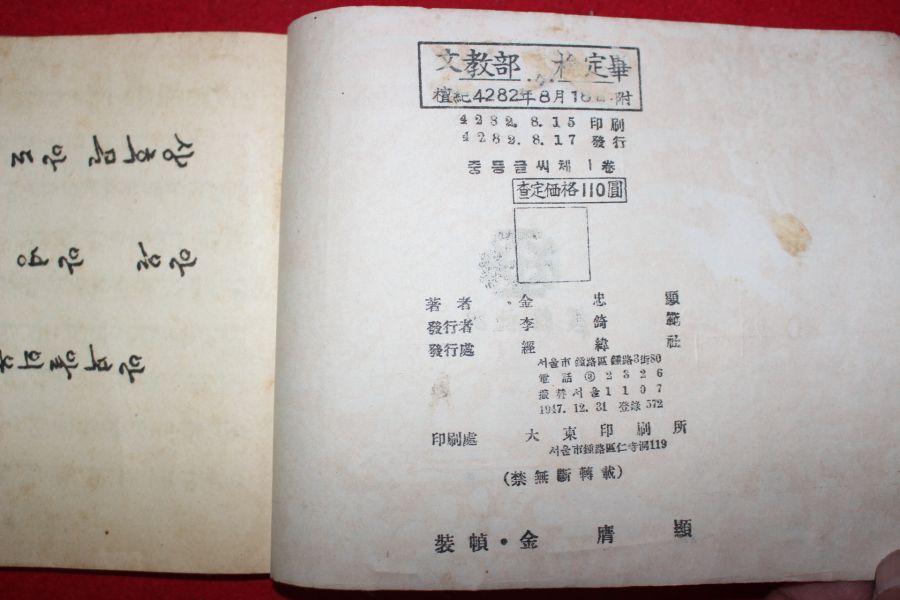 文教部 檢定畢
檀紀4282年8月16日附
4282. 8. 15 印刷
4282. 8. 17 發行
중등글씨체 1 卷
査定価格110圓
著者・金忠顯
發行者 李錡範
發行處 經緯社
서울市鍾路區鍾路3街80
電話③2326
振替서울1197
1947. 12. 31 登錄 572
印刷處 大東印刷所
서울市鍾路區仁寺洞119
(禁無斷轉載)
裝幀・金膺顯